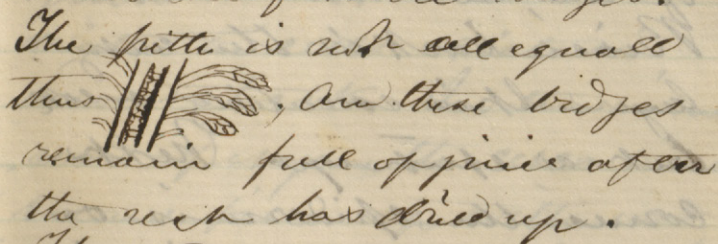 The pith is not all equall
thus , and these
remain full of juice after
the rest has dried up.